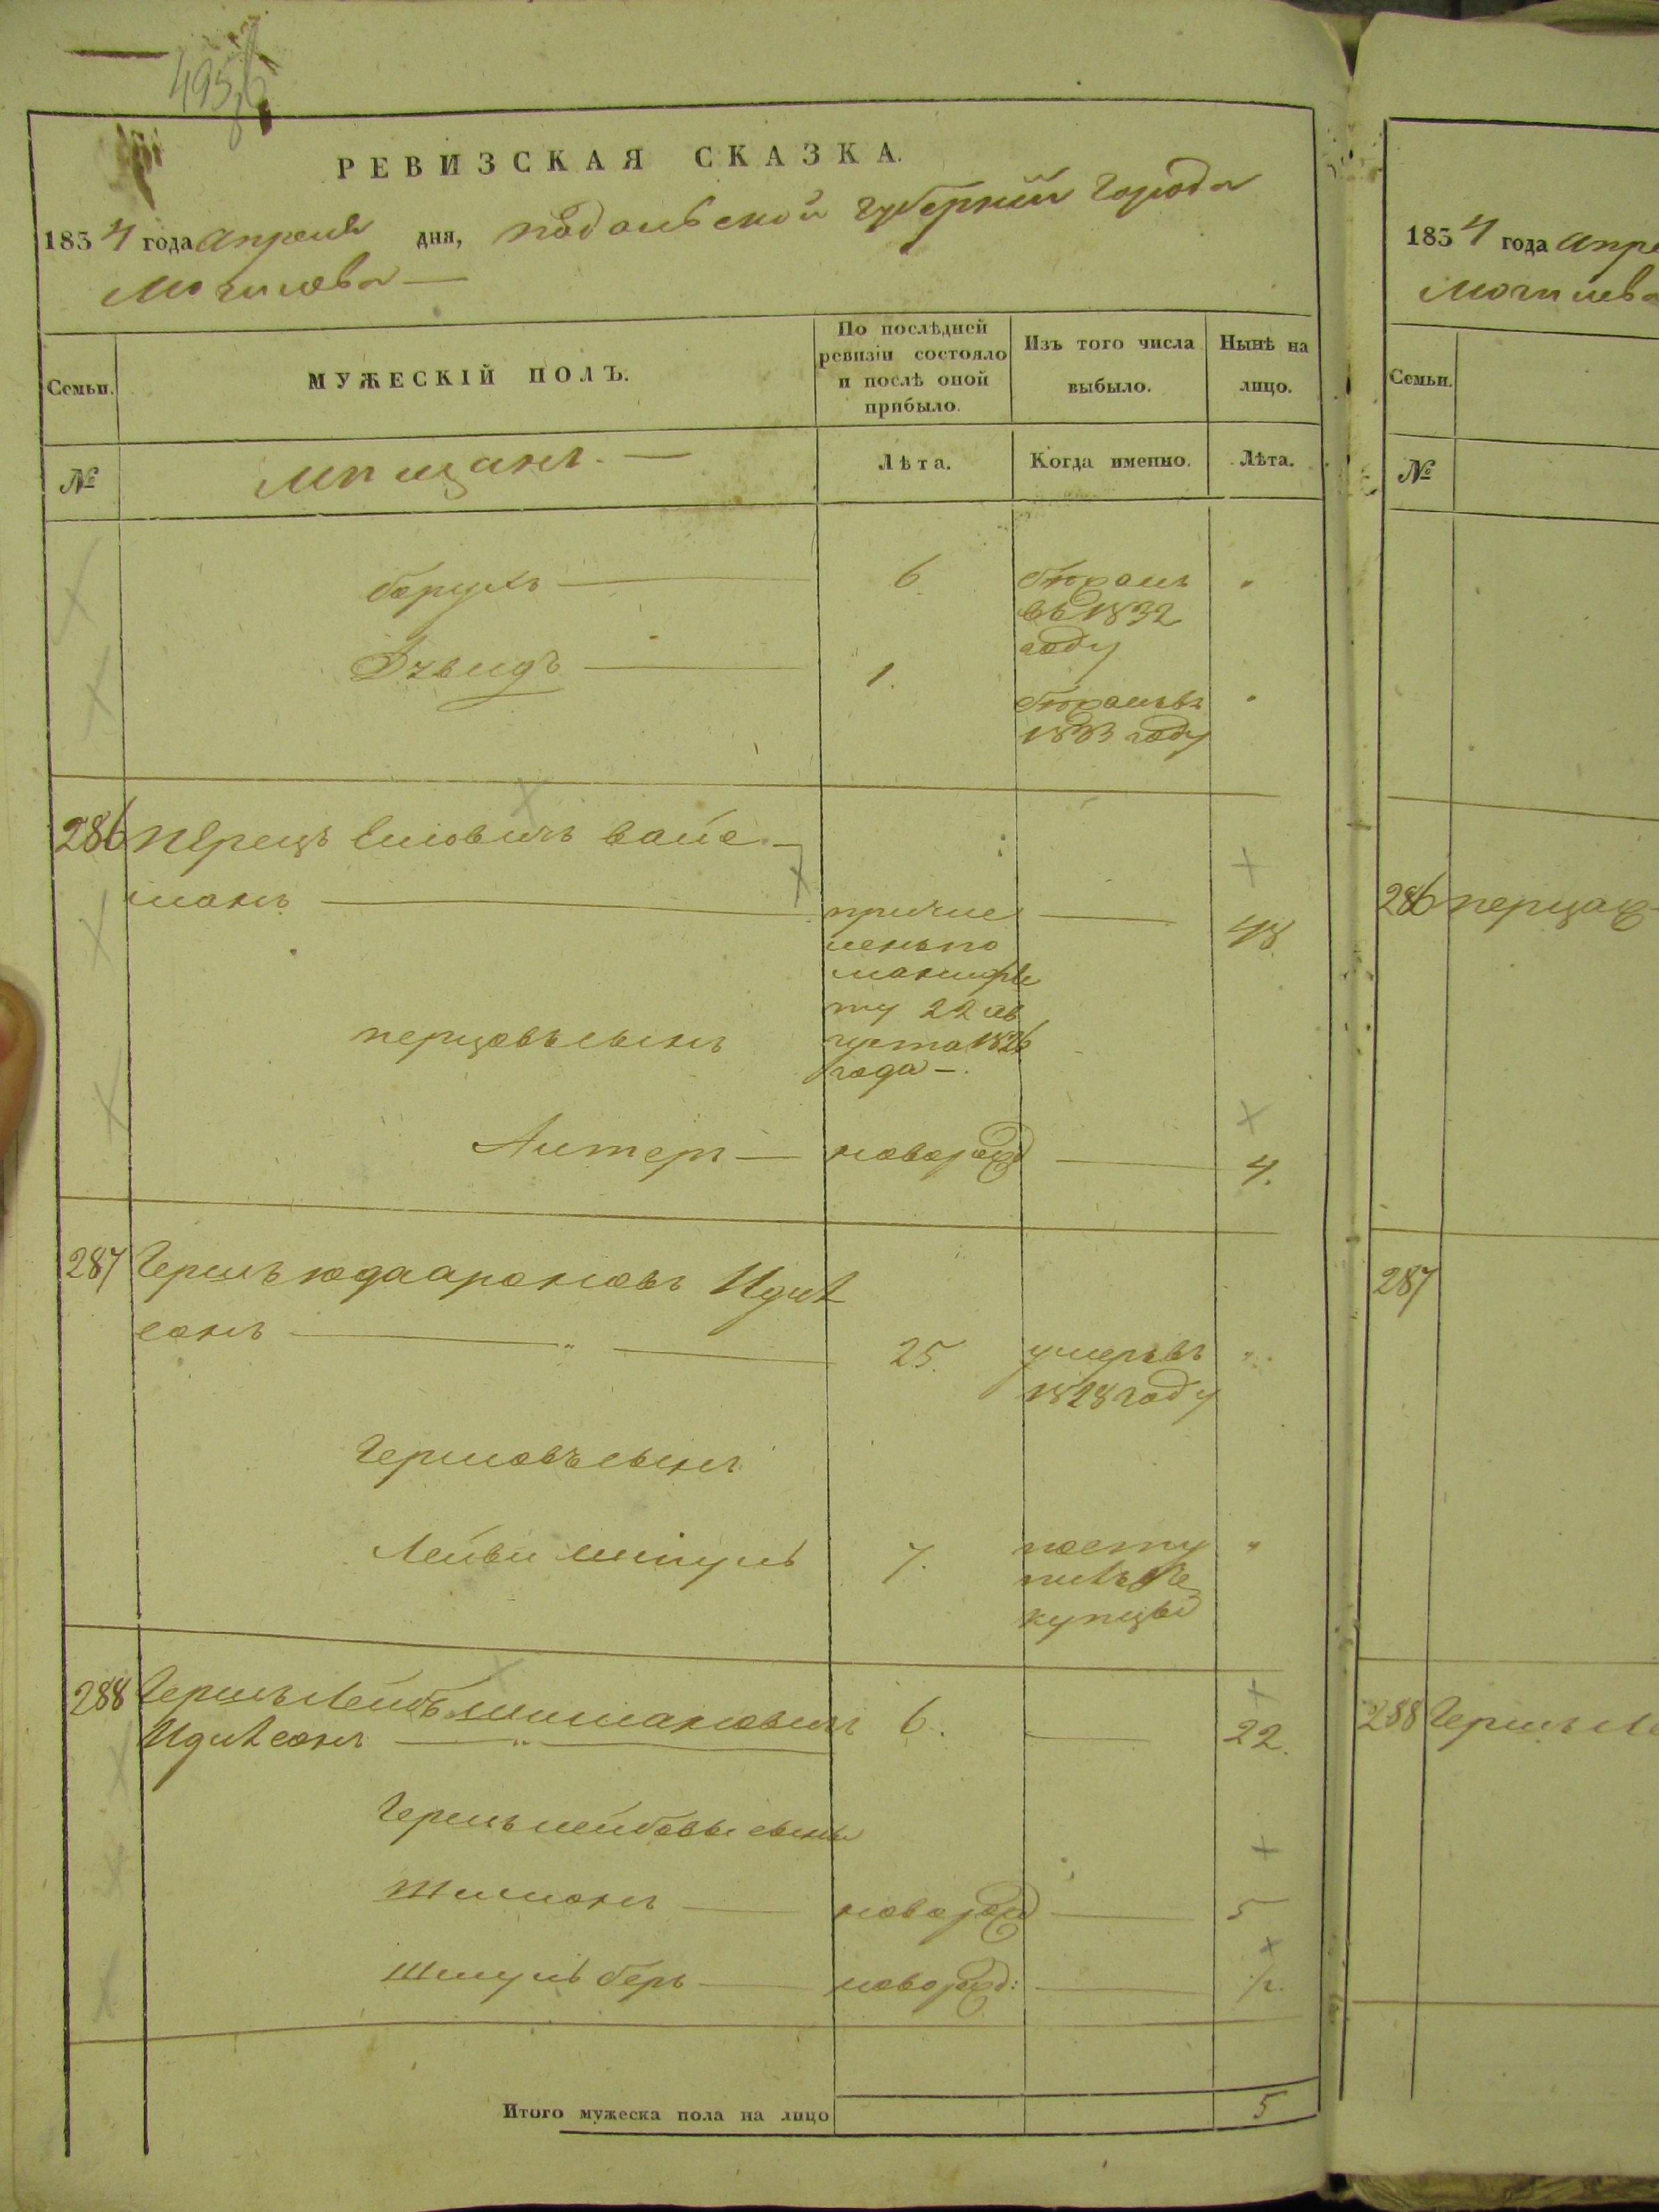 495
РЕВИЗСКАЯ СКАЗКА.
1834 года апреля дня, подольской губернии города
Могилева —
Семьи.
МУЖЕСКІЙ ПОЛЪ.
По послѣдней
ревизіи состояло
и послѣ оной
прибыло.
Изъ того числа
выбыло.
Нынѣ на
лицо.
№
Мещане. —
Лѣта.
Когда именно.
Лѣта.
борухъ — 6
въ 1832
году
1.
1833 году
286 перецъ вайс
манъ — причис — 48
ленъ по
манифе
ту 22 ав
густа 1826
года —.
перцовъ сынъ
Алтеръ — новорож — 4.
287 Гершъ юда ароновъ Идил
сонъ — 25. умеръ въ
1828 году
Гершовъ сынъ
Лейви шмуль 7. посту
пилъ
купцы
288 Гершъ Лейбъ шимановичъ 6. — 22.
Идилсонъ —
Гершъ лейбовы сыны
Шимонъ — новорож — 5
Шмуль беръ — новорож: —
Итого мужеска пола на лицо 5
1834 года апре
Могилева
Семьи.
№
286 перца
287
288 Гершъ Ле